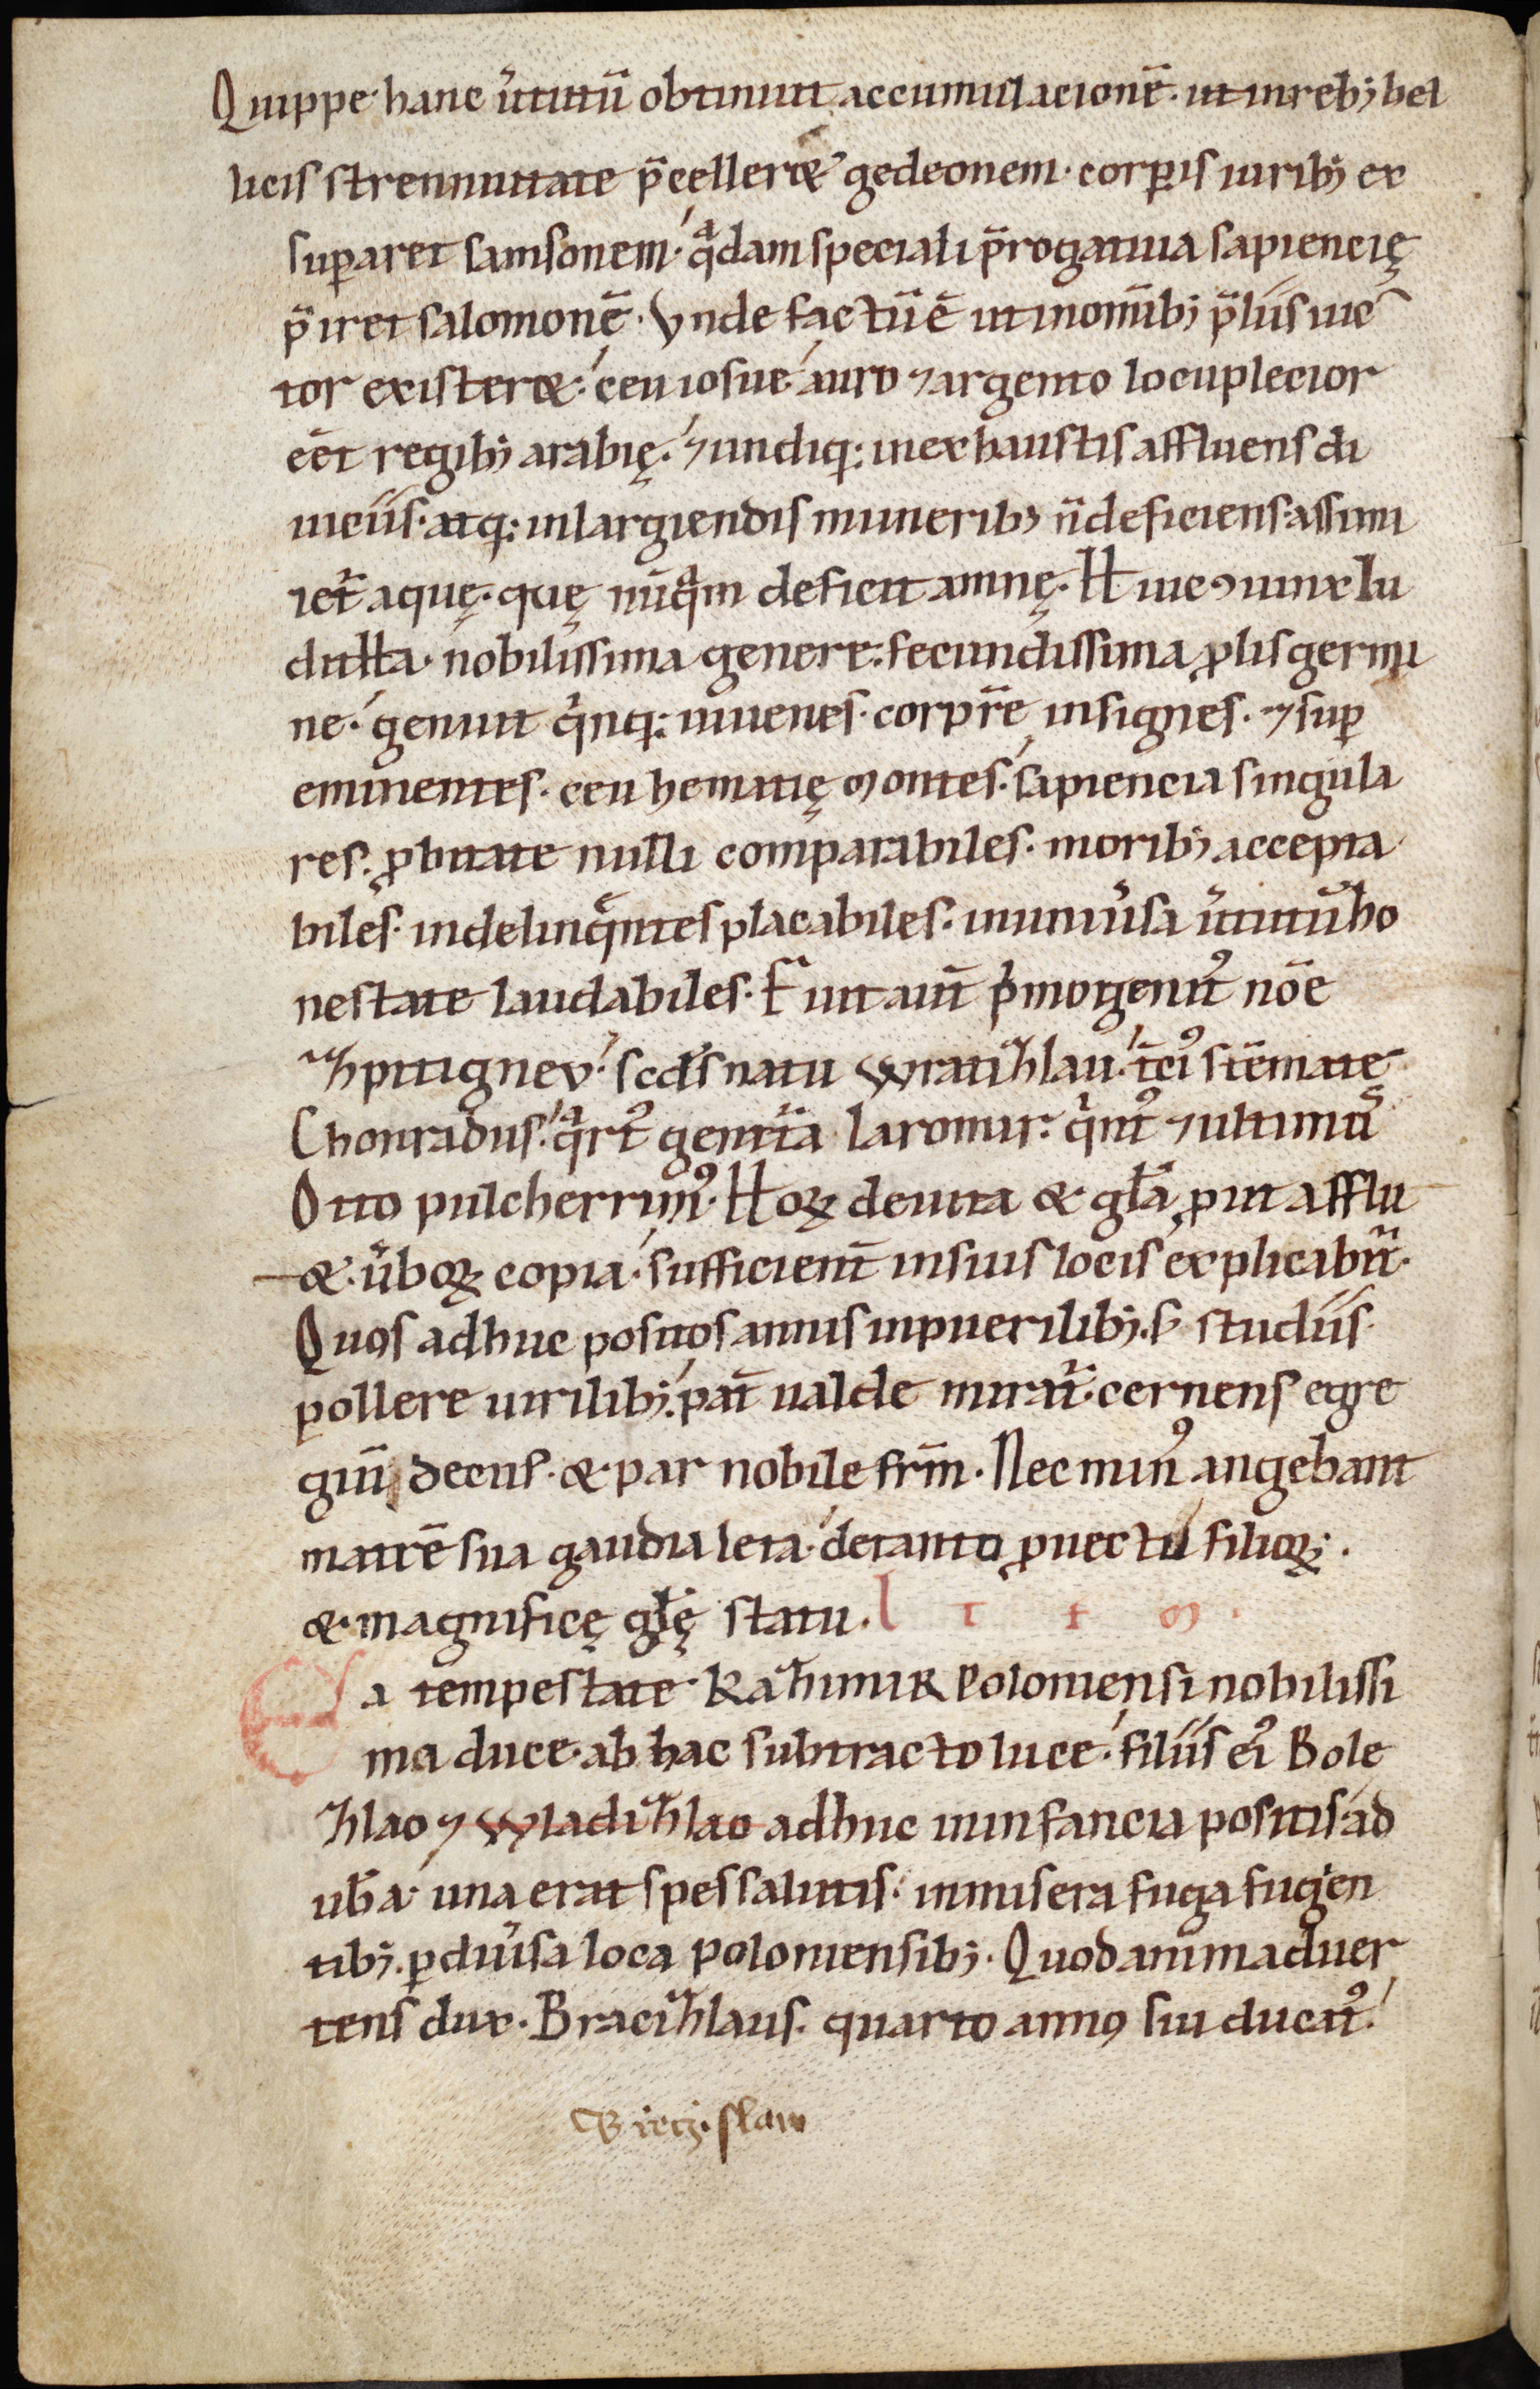 Quippe hanc ũtutũ obtinuit accumulacionẽ. ut in reb; bel
licis strennuitate p̃celleret gedeonem. corꝑis uirib; ex
suꝑaret samsonem. qͣdam speciali p̃rogatiua sapiencię
p̃iret salomonẽ. Vnde factũ ẽ ut in om̃ib; p̃liis uic
tor existeret. ceu iosue. auro ⁊ argento locuplecior
eẽt regib; arabię. ⁊ undiq; inexhaustis affluens di
uiciis. atq; in largiendis munerib; ñ deficiens. assimi
let̃ aquę. quę nũqͣm deficit amnę. Huic ꝯiunx Iu
ditha. nobilissima genere. fecundissima ꝓlis germi
ne. genuit qͥnq; iuuenes. corꝑr̃e insignes. ⁊ suꝑ
eminentes. ceu hematię montes. sapiencia singula
res. ꝓbitate nulli comparabiles. morib; accepta
biles. in delinq̃ntes placabiles. in uniũsa ũtutũ ho
nestate laudabiles. Fuit aut̃ pͥmogenitꝰ nõe
Zpitignev. scd̃s natu Wratizlau. t̃ciꝰ stẽmate
Chonradus. qͣrtꝰ genit̃a Iaromir. qͥntꝰ ⁊ ultimũ
Otto pulcherrimꝰ. Hoꝝ de uita & gl̃a ꝓut afflu
et ũboꝝ copia. sufficient̃ in suis locis explicabit̃.
Quos adhuc positos annis in puerilib;. s; studiis
pollere uirilib;. pat̃ ualde mirat̃. cernens egre
giũ decus. & par nobile fr̃m. Nec minꝰ augebant
matrẽ sua gaudia leta. de tanto ꝓuectu filioꝝ.
& magnificę gl̃ę statu. l t t m.
Ea tempestate Kazimir Poloniensi nobilissi
mo duce. ab hac subtracto luce. filiis eiꝰ Bole
zlao ⁊ Wladizlao adhuc in infancia positis. ad
ub̃a una erat spes salutis. in misera fuga fugien
tib; ꝑ diũsa loca Poloniensib;. Quod animaduer
tens dux. Bracizlaus. quarto anno sui ducatꝰ.